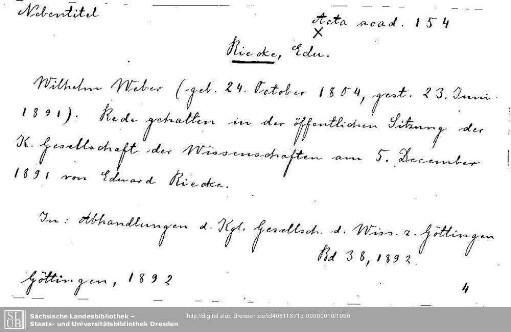 Nebentitel
Acta acad. 154
x
Riecke, Edu.
Wilhelm Weber (geb. 24. October 1804, gest. 23. Juni
1891). Rede gehalten in der öffentlichen Sitzung der
K. Gesellschaft der Wissenschaften am 5. December
1891 von Eduard Riecke.
In: Abhandlungen d. Kgl. Gesellsch. d. Wiss. z. Göttingen
Bd 38, 1892.
Göttingen, 1892
4
SLUB
Sächsische Landesbibliothek –
Staats- und Universitätsbibliothek Dresden